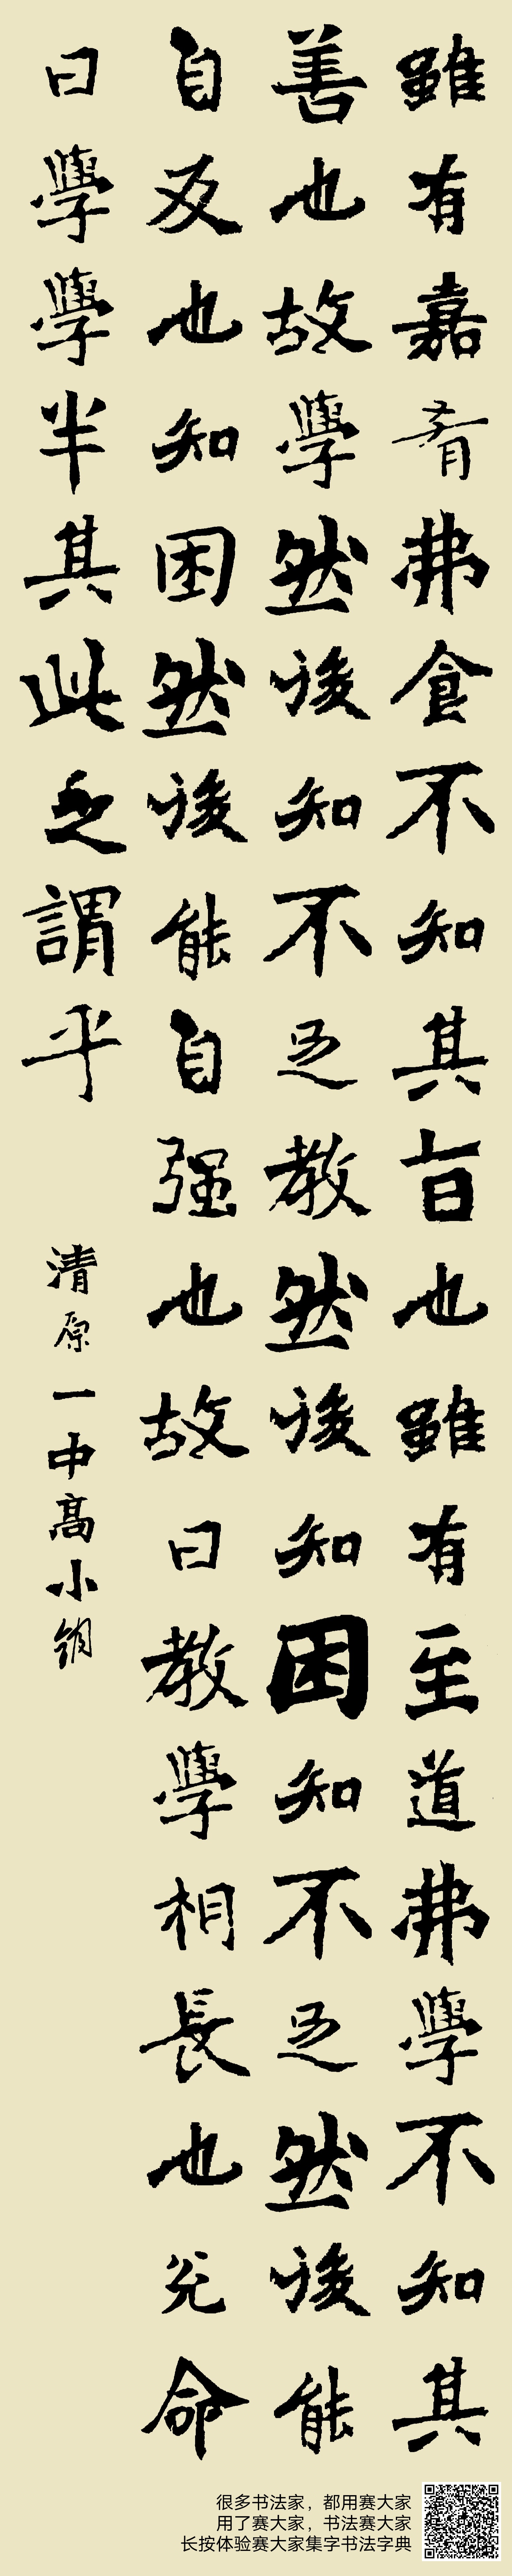 雖有嘉肴弗食不知其旨也雖有至道弗學不知其
善也故學然後知不足教然後知困知不足然後能
自反也知困然後能自强也故曰教學相長也兑命
曰學學半其此之謂乎
清原一中高小
很多书法家，都用赛大家
用了赛大家，书法赛大家
长按体验赛大家集字书法字典